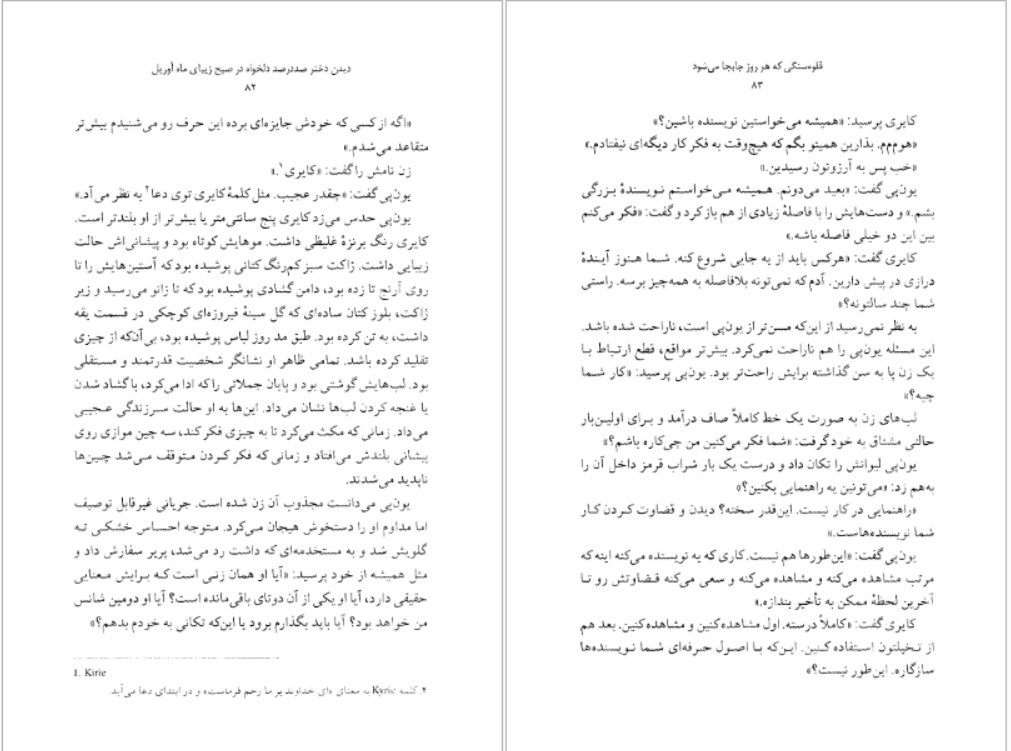 دیدن دختر صددرصد دلخواه در صبح زیبای ماه آوریل
۸۲
«اگه از کسی که خودش جایزه‌ای برده این حرف رو می‌شنیدم بیش‌تر
متقاعد می‌شدم.»
زن نامش را گفت: «کایری۱.»
یون‌پی گفت: «چقدر عجیب. مثل کلمهٔ کایری توی دعا۲ به نظر می‌آد.»
یون‌پی حدس می‌زد کایری پنج سانتی‌متر یا بیش‌تر از او بلندتر است.
کایری رنگ برنزهٔ غلیظی داشت. موهایش کوتاه بود و پیشانی‌اش حالت
زیبایی داشت. ژاکت سبز کم‌رنگ کتانی پوشیده بود که آستین‌هایش را تا
روی آرنج تا زده بود، دامن گشادی پوشیده بود که تا زانو می‌رسید و زیر
ژاکت، بلوز کتان ساده‌ای که گل سینهٔ فیروزه‌ای کوچکی در قسمت یقه
داشت، به تن کرده بود. طبق مد روز لباس پوشیده بود، بی‌آن‌که از چیزی
تقلید کرده باشد. تمامی ظاهر او نشانگر شخصیت قدرتمند و مستقلی
بود. لب‌هایش گوشتی بود و پایان جملاتی را که ادا می‌کرد، با گشاد شدن
یا غنچه کردن لب‌ها نشان می‌داد. این‌ها به او حالت سرزندگی عجیبی
می‌داد. زمانی که مکث می‌کرد تا به چیزی فکر کند، سه چین موازی روی
پیشانی بلندش می‌افتاد و زمانی که فکر کردن متوقف می‌شد چین‌ها
ناپدید می‌شدند.
یون‌پی می‌دانست مجذوب آن زن شده است. جریانی غیرقابل توصیف
اما مداوم او را دستخوش هیجان می‌کرد. متوجه احساس خشکی ته
گلویش شد و به مستخدمه‌ای که داشت رد می‌شد، پریر سفارش داد و
مثل همیشه از خود پرسید: «آیا او همان زنی است که برایش معنایی
حقیقی دارد، آیا او یکی از آن دوتای باقی‌مانده است؟ آیا او دومین شانس
من خواهد بود؟ آیا باید بگذارم برود یا این‌که تکانی به خودم بدهم؟»
1. Kirie
۲. کلمه Kyrie به معنای «ای خداوند بر ما رحم فرماست» و در ابتدای دعا می‌آید.
قلوه‌سنگی که هر روز جابجا می‌شود
۸۳
کایری پرسید: «همیشه می‌خواستین نویسنده باشین؟»
«هوم‌م‌م. بذارین همینو بگم که هیچ‌وقت به فکر کار دیگه‌ای نیفتادم.»
«خب پس به آرزوتون رسیدین.»
یون‌پی گفت: «بعید می‌دونم. همیشه می‌خواستم نویسندهٔ بزرگی
بشم.» و دست‌هایش را با فاصلهٔ زیادی از هم باز کرد و گفت: «فکر می‌کنم
بین این دو خیلی فاصله باشه.»
کایری گفت: «هرکس باید از یه جایی شروع کنه. شما هنوز آیندهٔ
درازی در پیش دارین. آدم که نمی‌تونه بلافاصله به همه‌چیز برسه. راستی
شما چند سالتونه؟»
به نظر نمی‌رسید از این‌که مسن‌تر از یون‌پی است، ناراحت شده باشد.
این مسئله یون‌پی را هم ناراحت نمی‌کرد. بیش‌تر مواقع، قطع ارتباط با
یک زن پا به سن گذاشته برایش راحت‌تر بود. یون‌پی پرسید: «کار شما
چیه؟»
لب‌های زن به صورت یک خط کاملاً صاف درآمد و برای اولین‌بار
حالتی مشتاق به خود گرفت: «شما فکر می‌کنین من چی‌کاره باشم؟»
یون‌پی لیوانش را تکان داد و درست یک بار شراب قرمز داخل آن را
به‌هم زد: «می‌تونین یه راهنمایی بکنین؟»
«راهنمایی در کار نیست. این‌قدر سخته؟ دیدن و قضاوت کردن کار
شما نویسنده‌هاست.»
یون‌پی گفت: «این‌طورها هم نیست. کاری که یه نویسنده می‌کنه اینه که
مرتب مشاهده می‌کنه و مشاهده می‌کنه و سعی می‌کنه قضاوتش رو تا
آخرین لحظهٔ ممکن به تأخیر بندازه.»
کایری گفت: «کاملاً درسته. اول مشاهده کنین و مشاهده کنین. بعد هم
از تخیلتون استفاده کنین. این‌که با اصول حرفه‌ای شما نویسنده‌ها
سازگاره. این‌طور نیست؟»